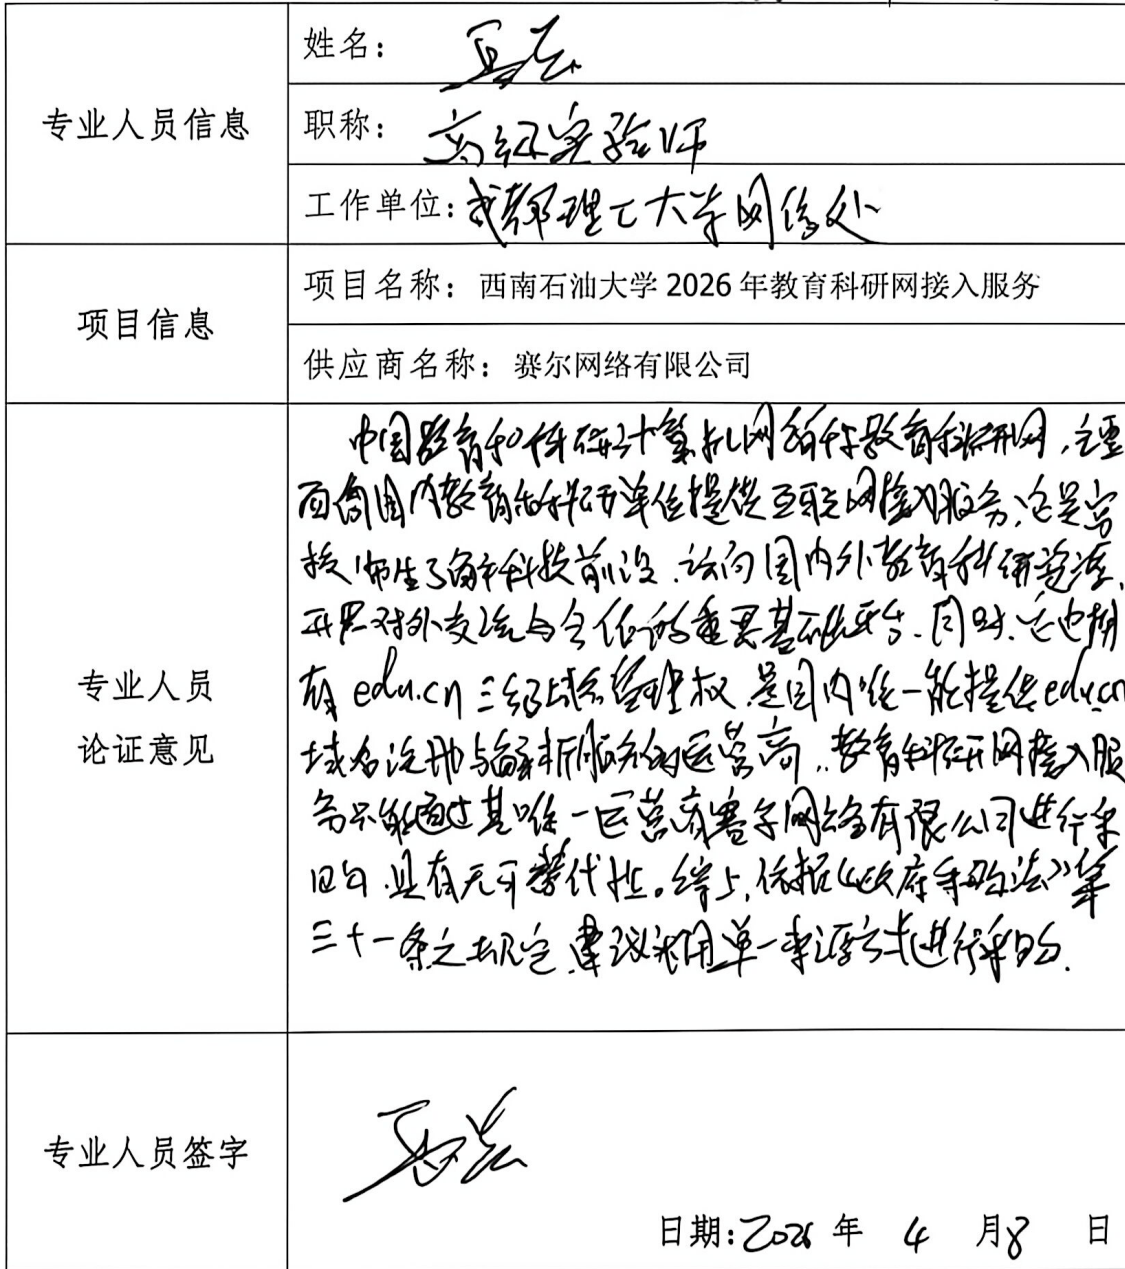 专业人员信息
姓名：
职称： 高级实验师
工作单位：成都理工大学网信处
项目信息
项目名称：西南石油大学 2026 年教育科研网接入服务
供应商名称：赛尔网络有限公司
专业人员
论证意见
中国教育和科研计算机网简称教育科研网，主要
面向国内教育和科研单位提供互联网接入服务，它是高
校师生了解科技前沿、访问国内外教育科研资源、
开展对外交流与合作的重要基础平台。同时，它也拥
有 edu.cn 三级域名管理权，是国内唯一能提供edu.cn
域名注册与解析服务的运营商，教育科研网接入服
务只能通过其唯一运营商赛尔网络有限公司进行采
购，具有无可替代性。综上，依据《政府采购法》第
三十一条之规定，建议采用单一来源方式进行采购。
专业人员签字
日期：2026 年 4 月 8 日